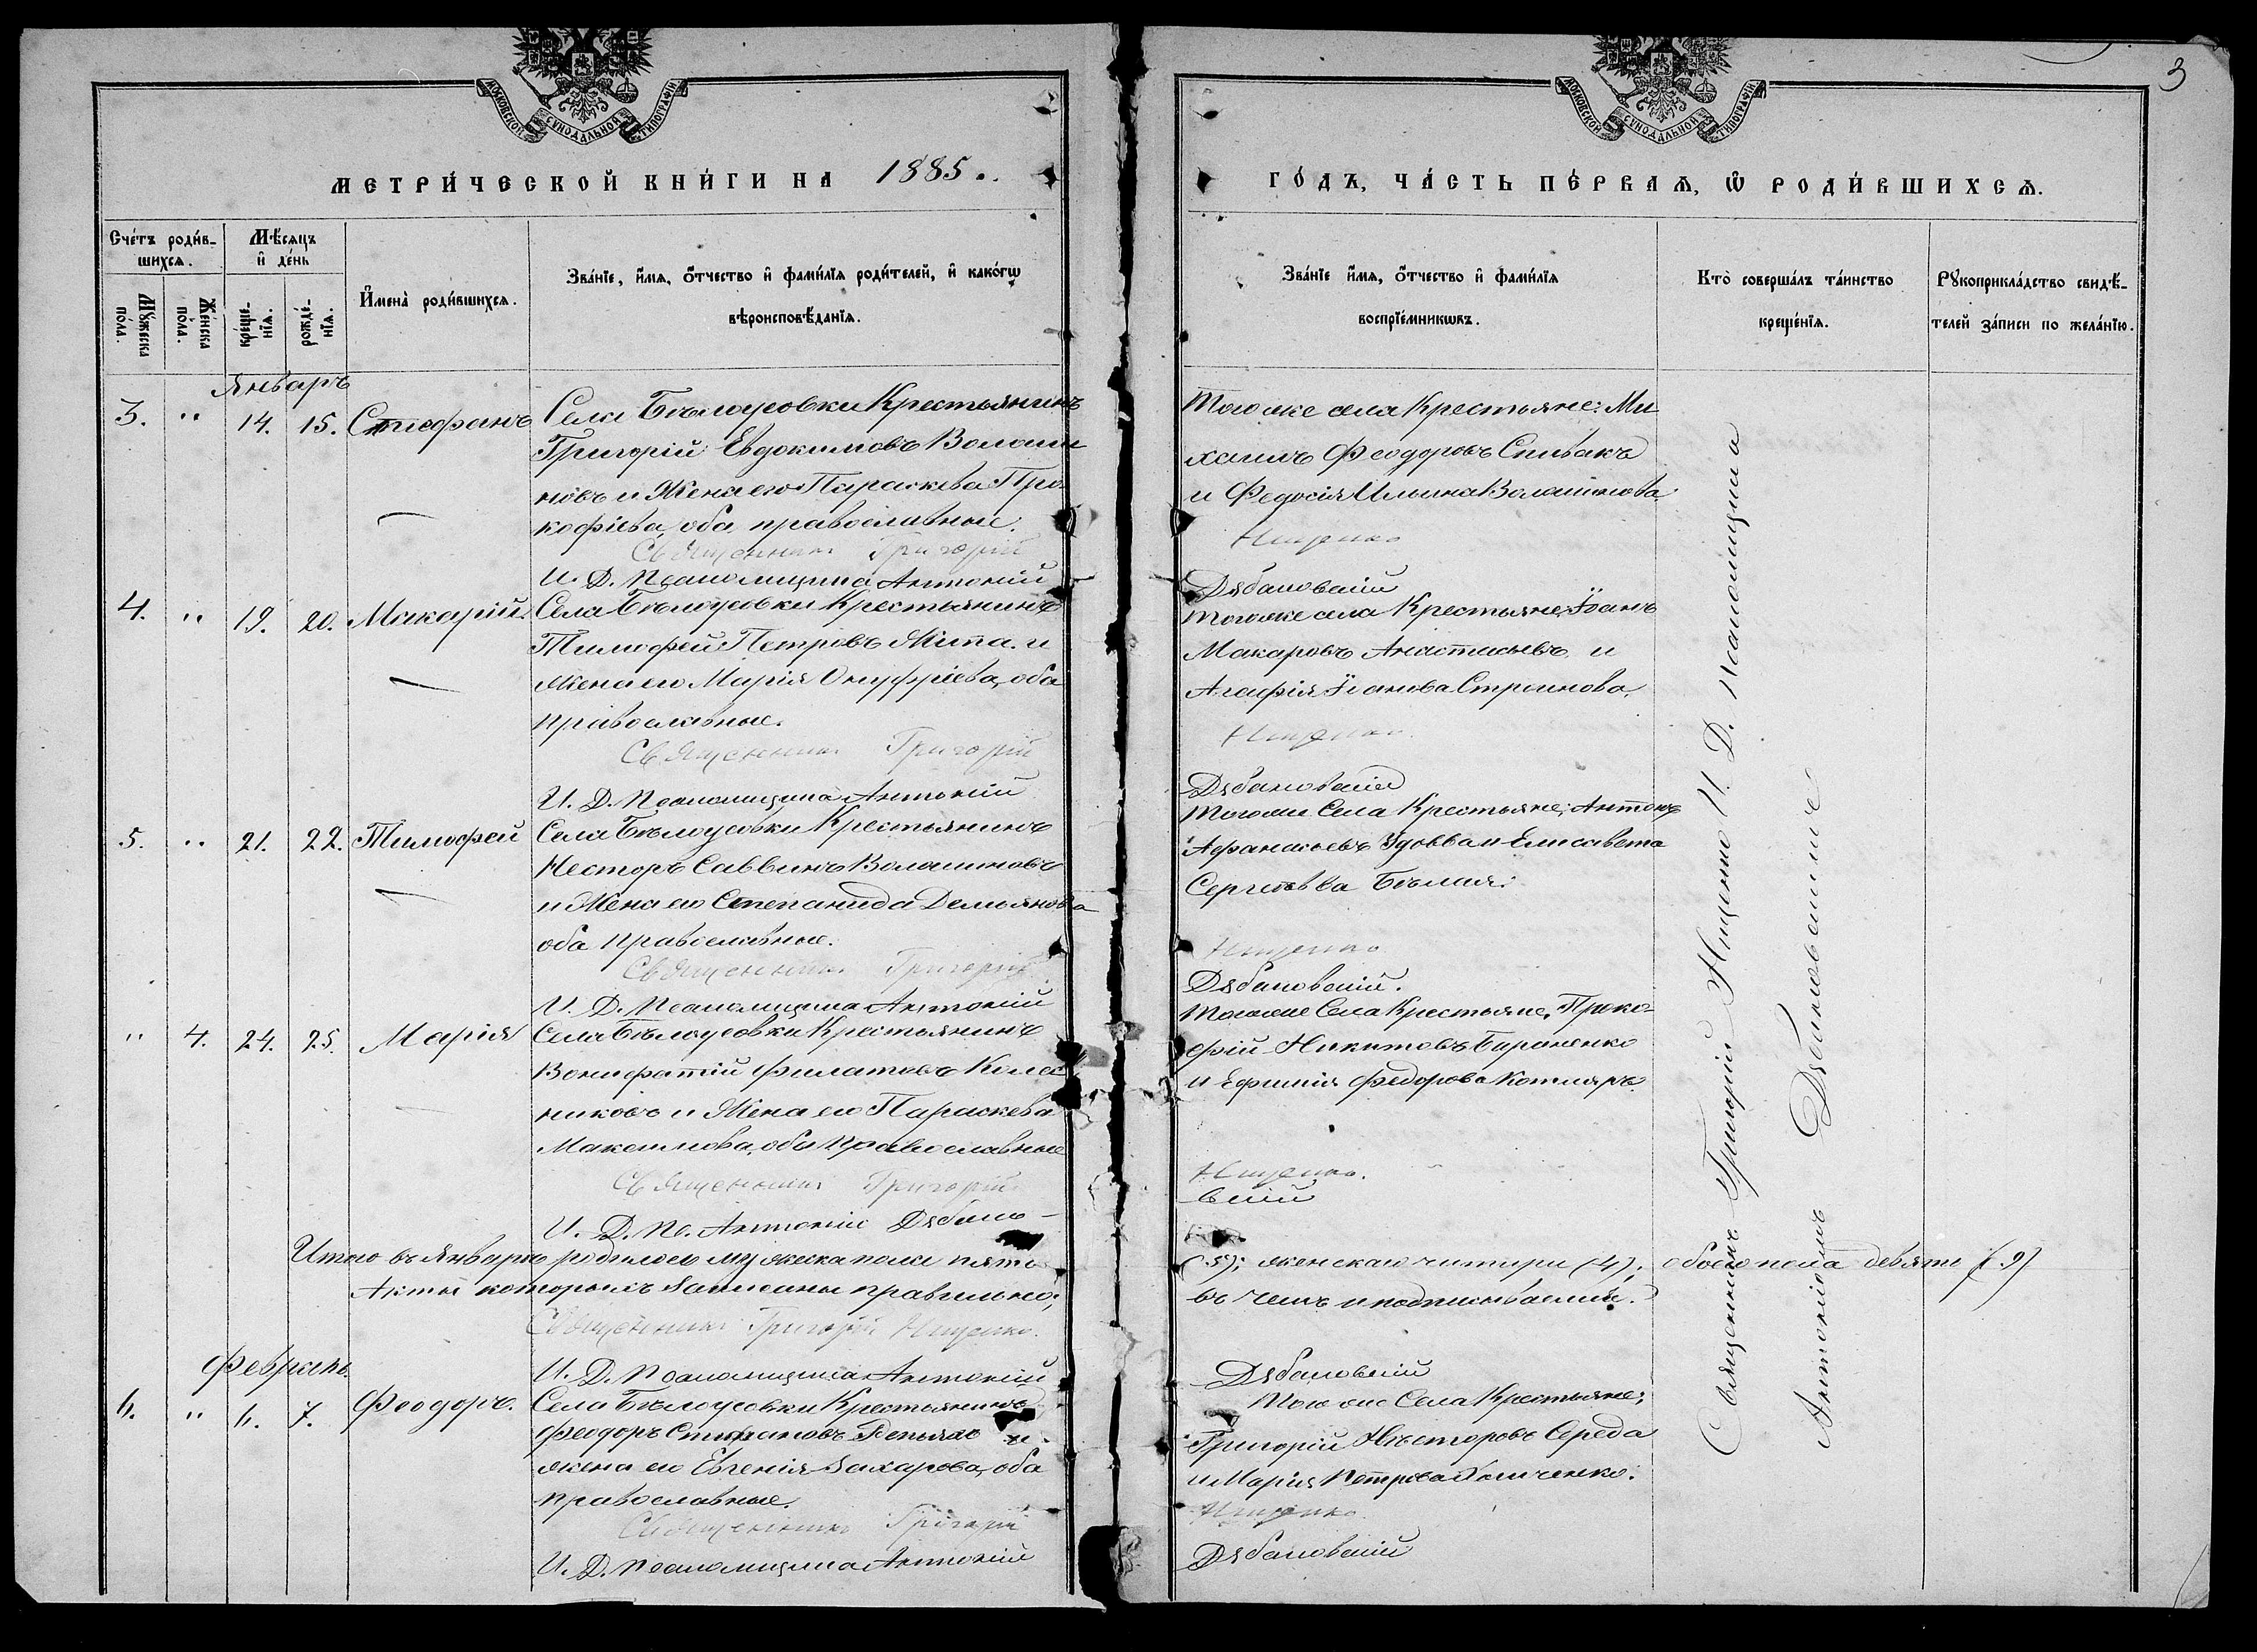 3
МОСКОВСКОЙ СѴНОДАЛЬНОЙ ТИПОГРАФІИ
МОСКОВСКОЙ СѴНОДАЛЬНОЙ ТИПОГРАФІИ
МЕТРИ́ЧЕСКОЙ КНИ́ГИ НА 1885.
ГО́ДЪ, ЧА́СТЬ ПЕ́РВАѦ, Ѡ РОДИ́ВШИХСѦ.
Счéтъ роди́в-
шихсѧ.
Мѣ́сѧцъ
и҆ дéнь
Мꙋ́жеска
пóла.
Жéнска
пóла.
креще-
нїѧ.
рождé-
нїѧ.
И҆мена̀ роди́вшихсѧ.
Звáнїе, и҆́мѧ, ѻ҆́тчество и҆ фами́лїѧ роди́телей, и҆ какóгѡ
вѣроисповѣ́данїѧ.
Звáнїе и҆́мѧ, ѻ҆́тчество и҆ фами́лїѧ
воспрїéмникѡвъ.
Ктò совершáлъ тáинство
крещéнїѧ.
Рꙋкоприклáдство свидѣ́-
телей зáписи по желáнїю.
Январь
3. " 14. 15. Стефанъ
Села Бѣлоусовки Крестьянинъ
Григорій Евдокимовъ Волоши
новъ и Жена его Параскева Про
кофіева, оба православные.
Священникъ Григорій
И. Д. Псаломщика Антоній
Того же села Крестьяне: Ми
хаилъ Феодоровъ Спивакъ
и Федосія Ильина Волошинова
Ищенко
Дябановскій
4. " 19. 20. Макарій.
Села Бѣлоусовки Крестьянинъ
Тимофей Петровъ и
жена его Марія Онуфріева, оба
православные.
Священникъ Григорій
И. Д. Псаломщика Антоній
Того же села Крестьяне: Іоанъ
Макаровъ и
Агафія Іоанова
Ищенко
Дябановскій
5. " 21. 22. Тимофей
Села Бѣлоусовки Крестьянинъ
Несторъ Саввинъ Волошиновъ
и Жена его Степанида Демьянова
оба православные.
Священникъ Григорій
И. Д. Псаломщика Антоній
Того же Села Крестьяне: Антонъ
Афанасьевъ Удовва и Елисавета
Сергѣевва Бѣлая.
Ищенко
Дябановскій.
" 4. 24. 25. Марія
Села Бѣлоусовки Крестьянинъ
Вонифатій Филатовъ Колес
никовъ и Жена его Параскева
Максимова, оба Православные
Священникъ Григорій
И. Д. Пс. Антоній Дябано-
Того же Села Крестьяне, Проко-
фій Никитовъ Бараненко
и Ефимія Федорова Котляръ.
Ищенко.
вскій
Итого въ Январѣ родилось мужеска пола пять
(5); женскаго читири (4); обоего пола девять (9)
Акты которыхъ записаны правильно;
въ чемъ и подписываемся.
Священникъ Григорій Ищенко.
И. Д. Псаломщика Антоній
Дябановскій
Февраль
6. " 6. 7. Феодоръ.
Села Бѣлоусовки Крестьянинъ
Феодоръ Стефановъ и
жена его Евгенія Захарова, оба
православные.
Священникъ Григорій
И. Д. Псаломщика Антоній
Того же Села Крестьяне;
Григорій Несторовъ Середа
и Марія Петрова
Ищенко.
Дябановскій
Священникъ Григорій Ищенко И. Д. Псаломщика
Антоніомъ Дябановскимъ